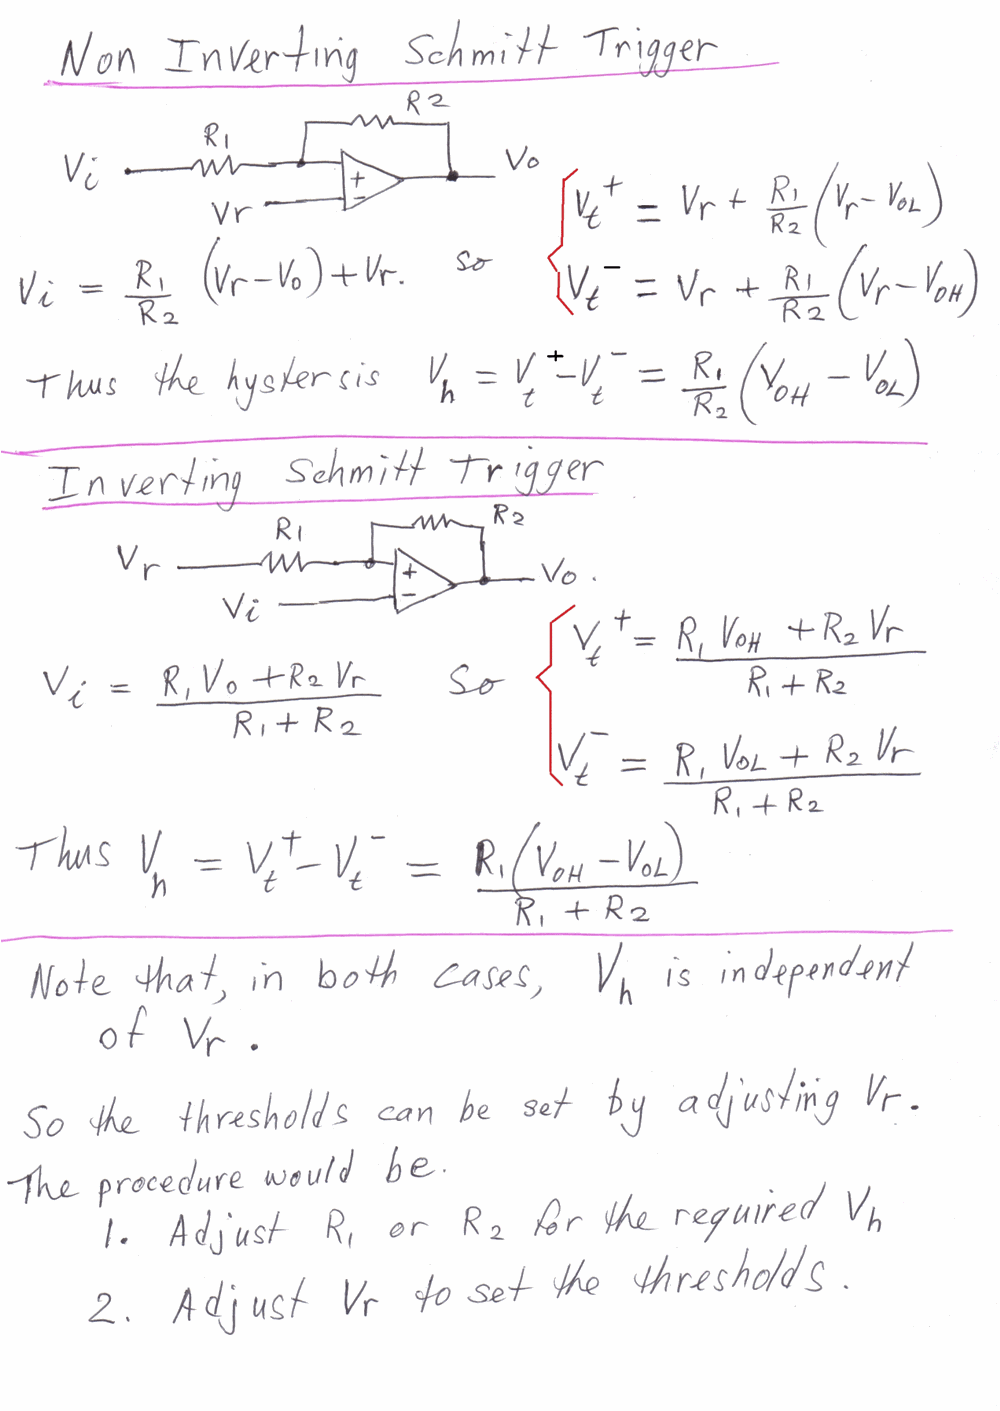 Non Inverting Schmitt Trigger
R2
R1
Vi
Vo
+
Vr
−
Vt+ = Vr + R1/R2 (Vr − VOL)
Vi = R1/R2 (Vr − Vo) + Vr. so
Vt− = Vr + R1/R2 (Vr − VOH)
Thus the hystersis Vh = Vt+ − Vt− = R1/R2 (VOH − VOL)
Inverting Schmitt Trigger
R1 R2
Vr
+
Vo .
Vi
−
Vt+ = (R1 VOH + R2 Vr)/(R1 + R2)
Vi = (R1 Vo + R2 Vr)/(R1 + R2) So
Vt− = (R1 VOL + R2 Vr)/(R1 + R2)
Thus Vh = Vt+ − Vt− = R1(VOH − VOL)/(R1 + R2)
Note that, in both cases, Vh is independent
of Vr .
So the thresholds can be set by adjusting Vr.
The procedure would be.
1. Adjust R1 or R2 for the required Vh
2. Adjust Vr to set the thresholds.